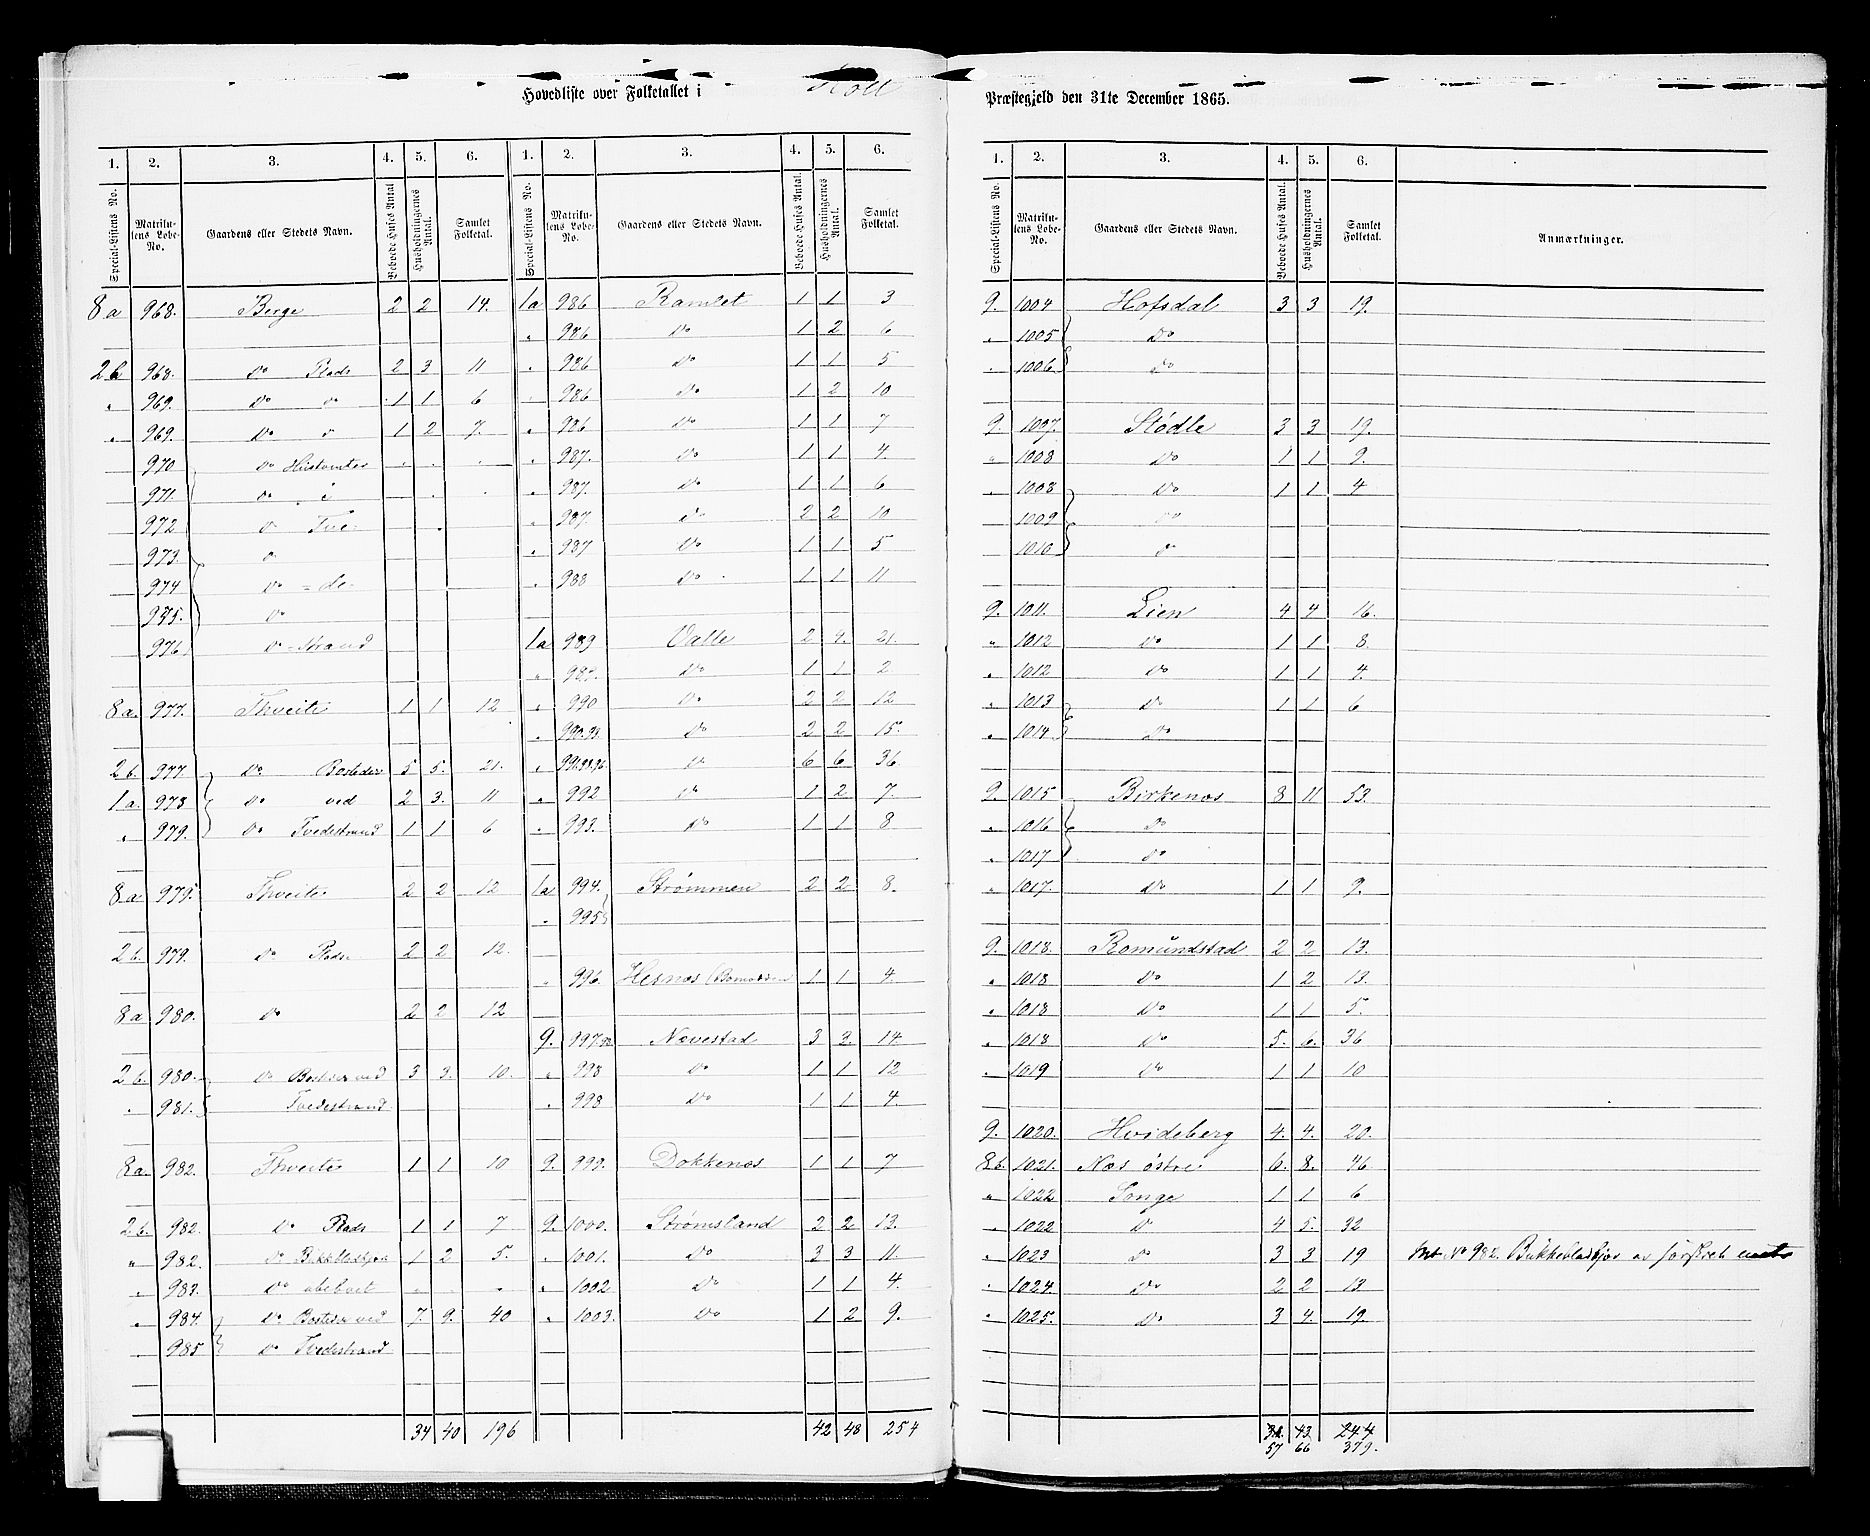 Hovedliste over Folketallet i Holt
Præstegjeld den 31te December 1865.
1. 2. 3. 4. 5. 6. 1. 2. 3. 4. 5. 6.
Special-Listens No. Matrikulens Løbe-No. Gaardens eller Stedets Navn. Beboede Huses Antal Husholdningernes Antal. Samlet Folketal. Special-Listens No. Matrikulens Løbe-No. Gaardens eller Stedets Navn. Beboede Huses Antal. Husholdningernes Antal. Samlet Folketal.
8a 968. Berge 2 2 14.
2b 968. Do Plads 2 3 11
" 969. Do o 1 1 6
" 969. Do o 1 2 7.
970 Do Hustomter . . .
971. o i
972 o Tve-
973. o
974 Do =de-
975. o
976 o -Strand
8a. 977. Thveite 1 1 12
2b. 977. Do Bosteder 5 5. 21.
1a. 978 Do ved 2 3. 11
" 979. Do Tvedestrand 1 1 6
8a 979. Thveite 2 2 12
2b. 979. Do Plads 2 2 12.
8a 980. Do 2 2 12
2b. 980. Do Bosteder ved 3 3. 10.
" 981. Tvedestrand
8a. 982. Thveite 1 1 10
2b. 982. Do Plads 1 1 7
" 982. Do 1 2 5.
" 983. Do ubeboet . . .
" 984. Do Bosteder ved 7. 9. 40
985 Do Tvedestrand
34 40 196
1a 986 Ramlet 1 1 3
" 986 Do 1 2 6
" 986 Do 1 1 5
" 986 Do 1 2 10
" 986 Do 1 1 7
" 987. Do 1 1 4.
" 987. Do 1 1 6
" 987. Do 2 2 10
" 987 Do 1 1 5
" 988 Do 1 1 11
1a 989 Valle 2 4. 21.
" 989. Do 1 1 2
" 990 Do 2 2 12
" Do 2 2 15.
" Do 6 6 36.
" 992 Do 1 2 7.
" 993. Do 1 1 8
1a 994. Strømmen 2 2 8.
" 995
" 996. Hesnæs 1 1 4.
9. Nævestad 3 3. 14
" 998 Do 1 1 12
" 998 Do 1 1 4.
9. 999. Dokkenæs 1 1 7
9. 1000. Strømsland 2 2 13.
" 1001. Do 3 3 11.
" 1002. Do 1 1 4.
" 1003. Do 1 2 9.
42 48 254
1. 2. 3. 4. 5. 6.
Special-Listens No. Matrikulens Løbe-No. Gaardens eller Stedets Navn. Beboede Huses Antal. Husholdningernes Antal. Samlet Folketal. Anmærkninger.
9. 1004 Hofsdal 3 3 19.
" 1005 Do
" 1006 Do
9. 1007. Stødle 3 3 19.
" 1008 Do 1 1 9.
" 1008 Do 1 1 4
1009 Do
1010 o
9. 1011. Lien 4 4 16.
" 1012 Do 1 1 8
" 1012 Do 1 1 4.
" 1013 Do 1 1 6
" 1014 Do
9. 1015 Birkenæs 8 11 53.
" 1016 Do
" 1017 Do
" 1017. Do 1 1 9.
9. 1018. Romundstad 2 2 13.
" 1018 Do 1 2 13.
" 1018 Do 1 1 5.
" 1018 Do 5. 6. 36
" 1019 Do 1 1 10
9. 1020. Hvideberg 4. 4. 20.
8b. 1021. Næs østre 6. 8. 46
" 1022 Songe 1 1 6
" 1022 Do 4 5. 32
" 1023 Do 3 3 19 Mt No 982.
" 1024. Do 2 2 13
" 1025. Do 3 4. 19.
43. 244
57 66 379.